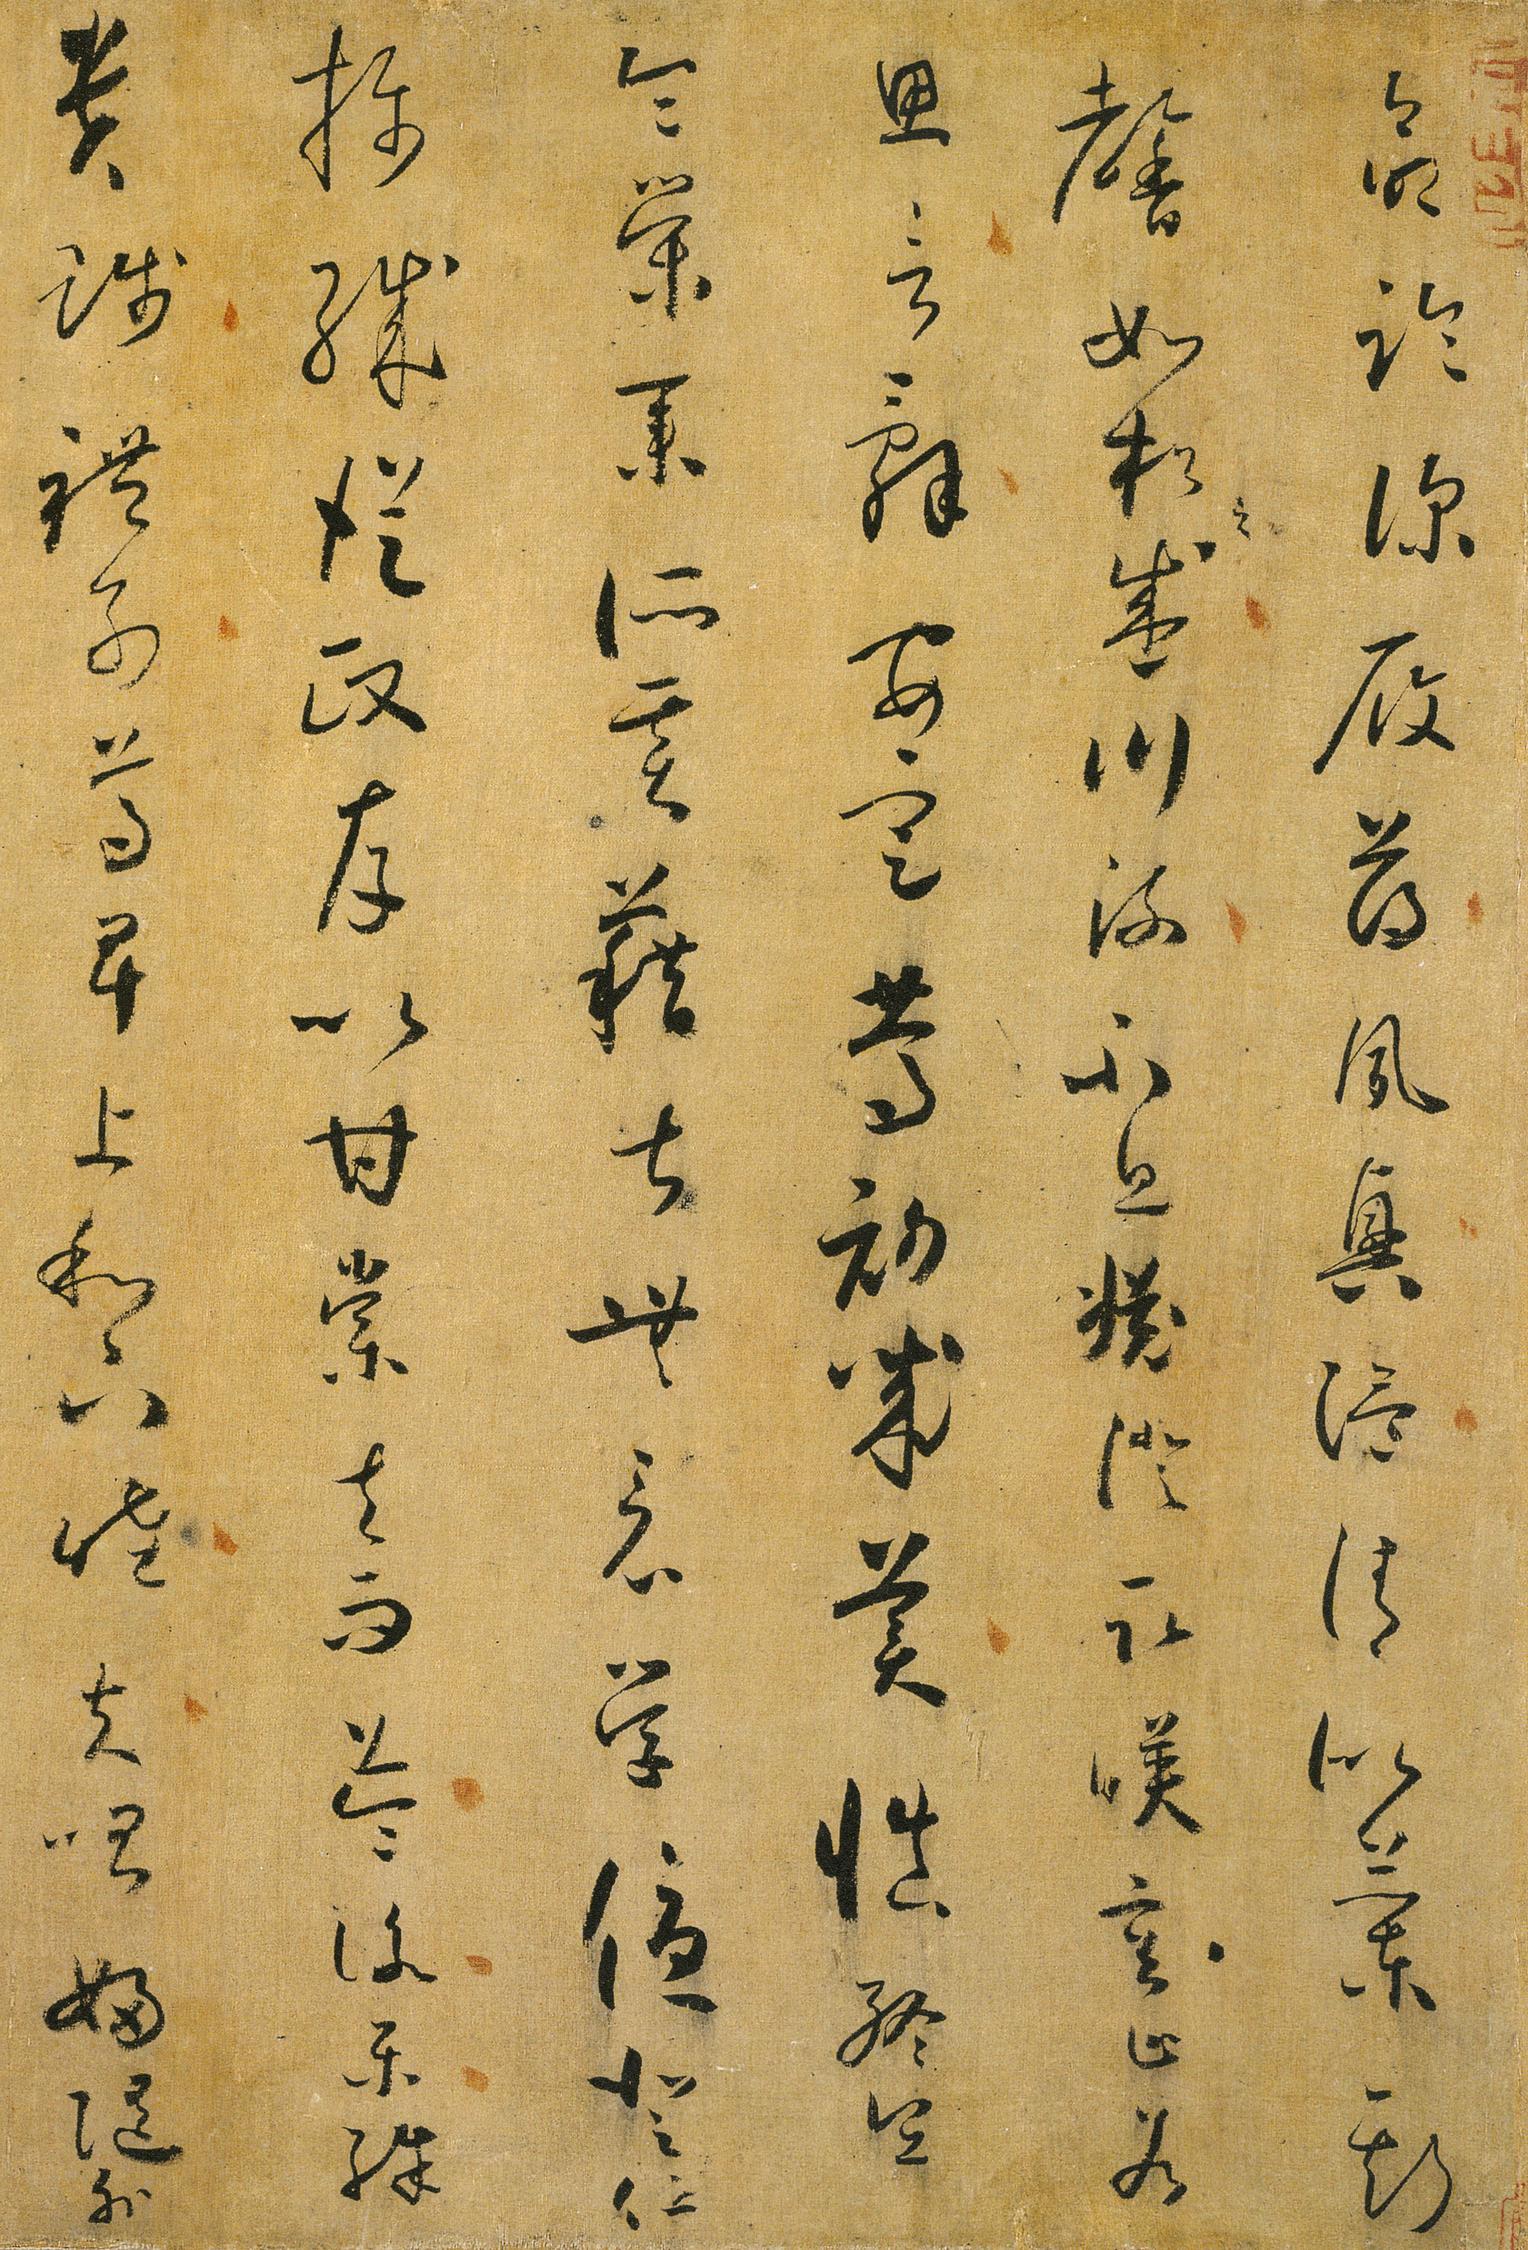 命臨深履薄夙興溫凊似蘭斯
馨如松之盛川流不息淵澄取暎容止若
思言辭安定篤初誠美慎終宜
令榮業所基藉甚無竟學優登仕
攝職從政存以甘棠去而益詠樂殊
貴賤禮別尊卑上和下睦夫唱婦隨外